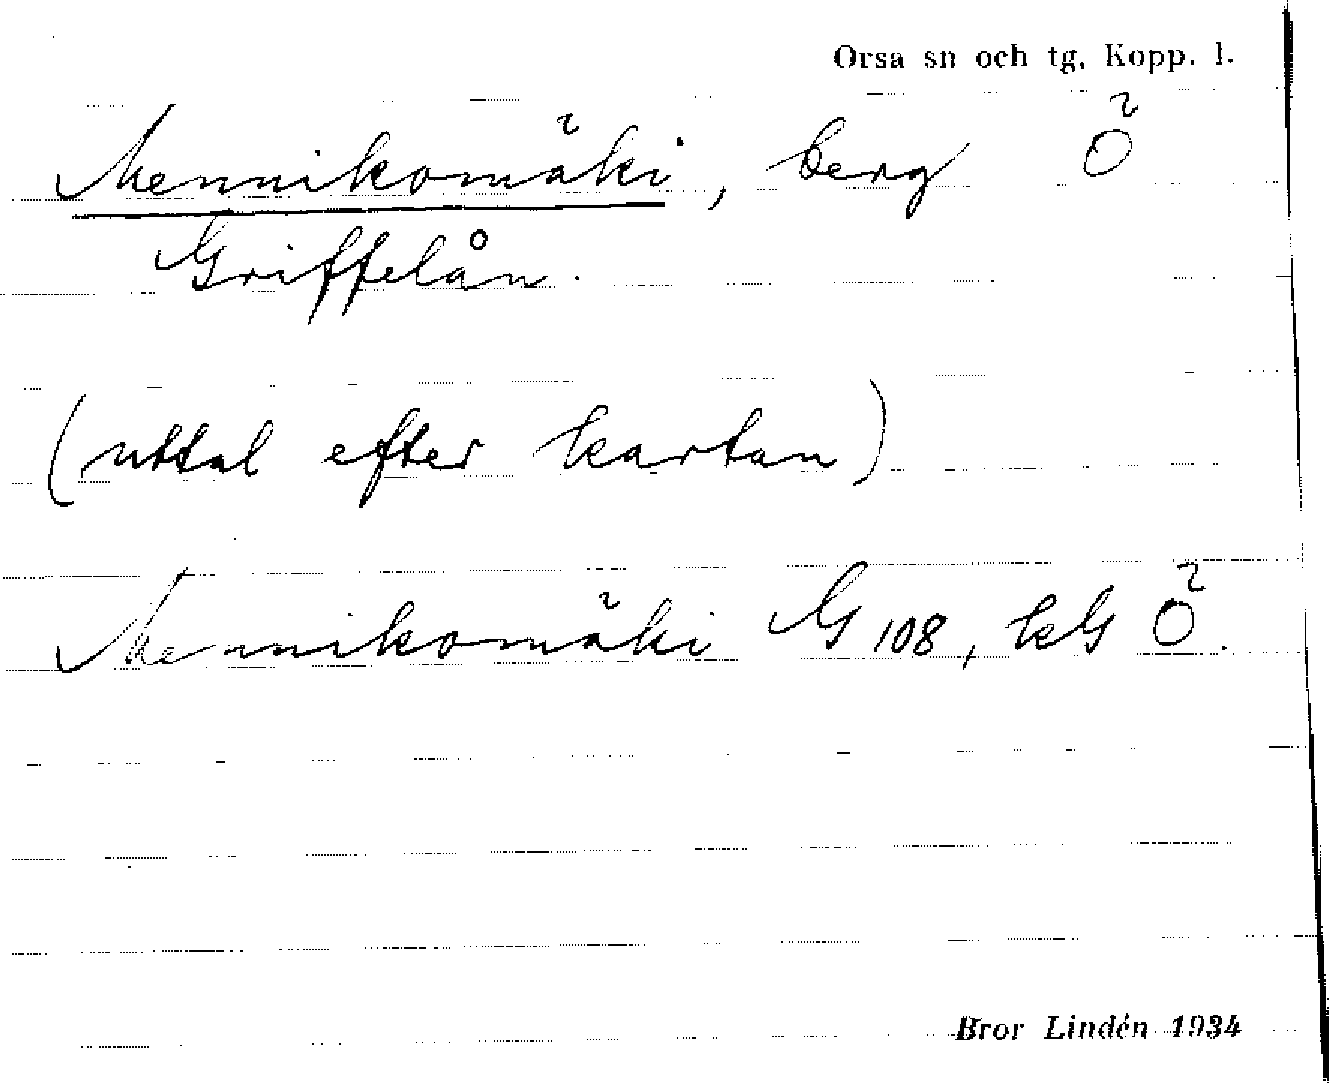 Orsa sn och tg, Kopp. l.
Mennikomäki, berg Ö
Griffelån.
(uttal efter kartan)
Mennikomäki G 108, kG Ö.
Bror Lindén 1934